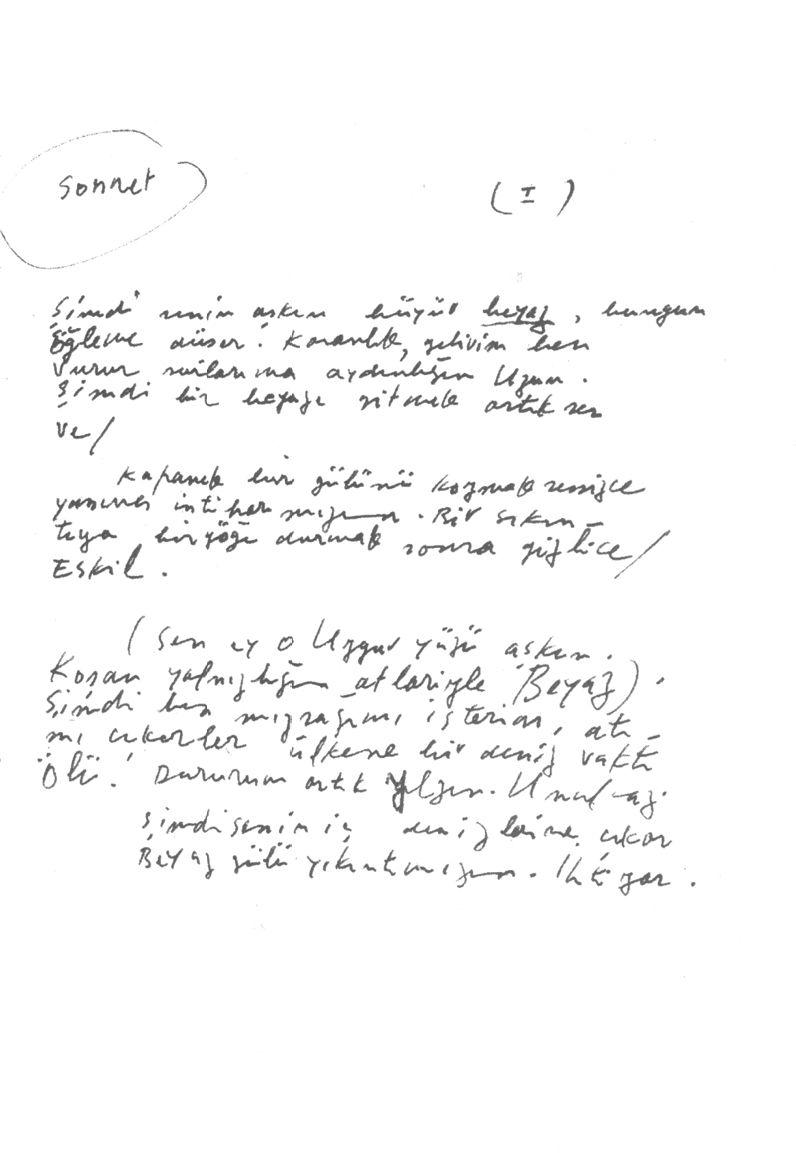 Sonnet
( I )
Şimdi senin aşkın büyür beyaz, bungun
Öğleme düşer. Karanlık, gelirim ben
Vurur surlarıma aydınlığın Uzun.
Şimdi bir beyaza gitmek artık sen
Ve/
Kapamak bir gülünü kozmak sessizce
yanına intihar mızın. Bir sıkın-
tıya bir göğe durmak sonra gizlice/
Eskil.
(Sen ey o Uygur yüzü aşkın.
Koşan yalnızlığın atlariyle Beyaz).
Şimdi ben mızrağımı isterim, atı-
mı çekerler ülkene bir deniz vakti
Ölü. Dururum artık Yılgın. Unul-az.
Şimdi senin iç denizlerine çıkar
Beyaz gülü yıkıntımızın. İhtiyar.